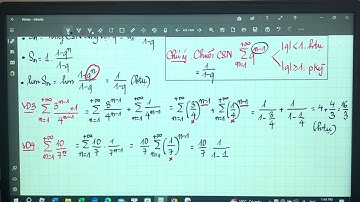 • Sn = 1 · (1 - qⁿ)/(1 - q)
• lim Sn = lim (1 - qⁿ)/(1 - q) = 1/(1 - q) (htu)
Chú ý Chuỗi CSN ∑_{n=1}^{+∞} q^{n-1} |q| < 1. htu
= 1/(1 - q) |q| ≥ 1. pkỳ
VD3 ∑_{n=1}^{+∞} (3^{n-1} + 1)/4^{n-1} = ∑_{n=1}^{+∞} 3^{n-1}/4^{n-1} + ∑_{n=1}^{+∞} 1/4^{n-1} = ∑_{n=1}^{+∞} (3/4)^{n-1} + ∑_{n=1}^{+∞} (1/4)^{n-1} = 1/(1 - 3/4) + 1/(1 - 1/4) = 4 + 4/3 = 16/3
(htu)
VD4 ∑_{n=1}^{+∞} 10/7ⁿ = ∑_{n=1}^{+∞} 10/7 · 1/7^{n-1} = 10/7 ∑_{n=1}^{+∞} (1/7)^{n-1} = 10/7 · 1/(1 - 1